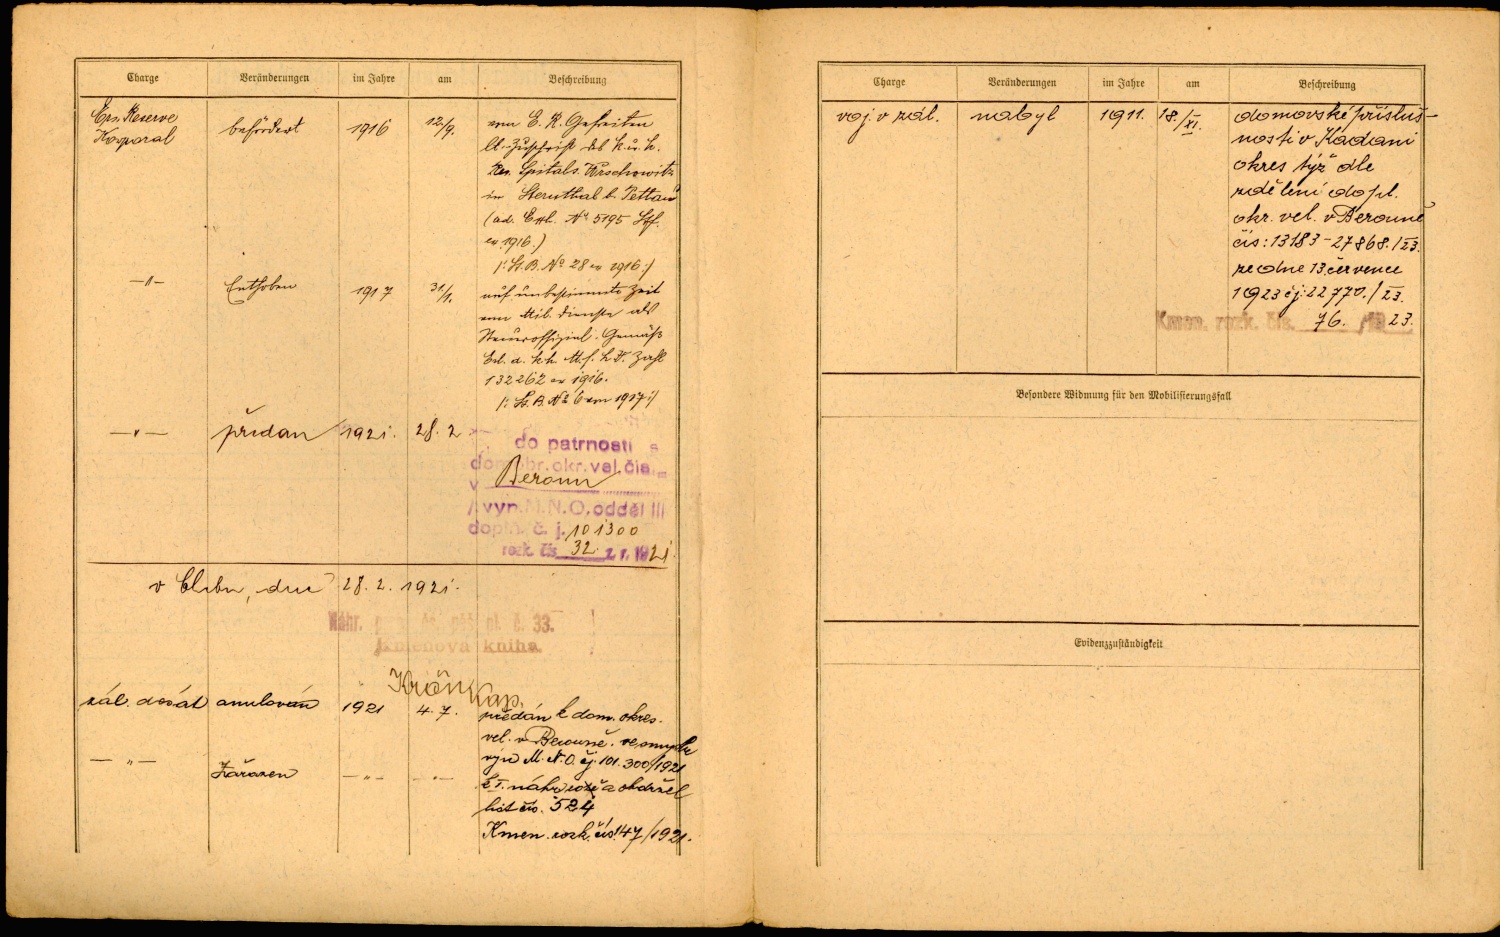 Charge Veränderungen im Jahre am Beschreibung
Ers. Reserve
Korporal befördert 1916 12/9. vom E. R. Gefreiten
lt. Zuschrift des k. u. k.
Res. Spitals Wrschowitz
in Sternthal b. Pettau
(ad. Exh. No 5195 Stf.
ex 1916.)
/: St. B. No 28 ex 1916 :/
—"— Enthoben 1917 31/1. auf unbestimmte Zeit
vom Mil. Dienste als
Steueroffizial. Gemäß
Erl. d. k.k. M. f. L. V. Zahl
132262 ex 1916.
/: St. B. No 6 vom 1917 :/
—"— předán 1921. 28. 2 do patrnosti s
domobr. okr. vel. čís.
v Beroun
/ vyn. M. N. O. odděl III
doplň. č. j. 101300
rozk. čís. 32. z r. 1921.
v Chebu, dne 28. 2. 1921.
Náhr. pěš. pl. č. 33.
Kmenová kniha.
kap.
zál. dozát. anulován 1921 4. 7. předán k dom. okres.
vel. v Berouně. ve smyslu
výn M. N. O. čj. 101.300/1921
—"— Zařazen —"— —"— k I. náhr. a obdržel
list čís. 524
Kmen. rozk. čís. 147/1921.
Charge Veränderungen im Jahre am Beschreibung
voj. v zál. nabyl 1911. 18/XI. domovské přísluš-
nosti v Kadani
okres týž dle
sdělení dopl.
okr. vel. v Berouně
čís: 13183-27868./23.
ze dne 13. července
1923 čj: 22770./23.
Kmen. rozk. čís. 76. /1923.
Besondere Widmung für den Mobilisierungsfall
Evidenzzuständigkeit